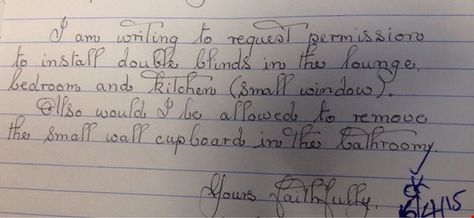 I am writing to request permission
to install double blinds in the lounge,
bedroom and kitchen (small window).
Also would I be allowed to remove
the small wall cupboard in the bathroom,
Yours faithfully,